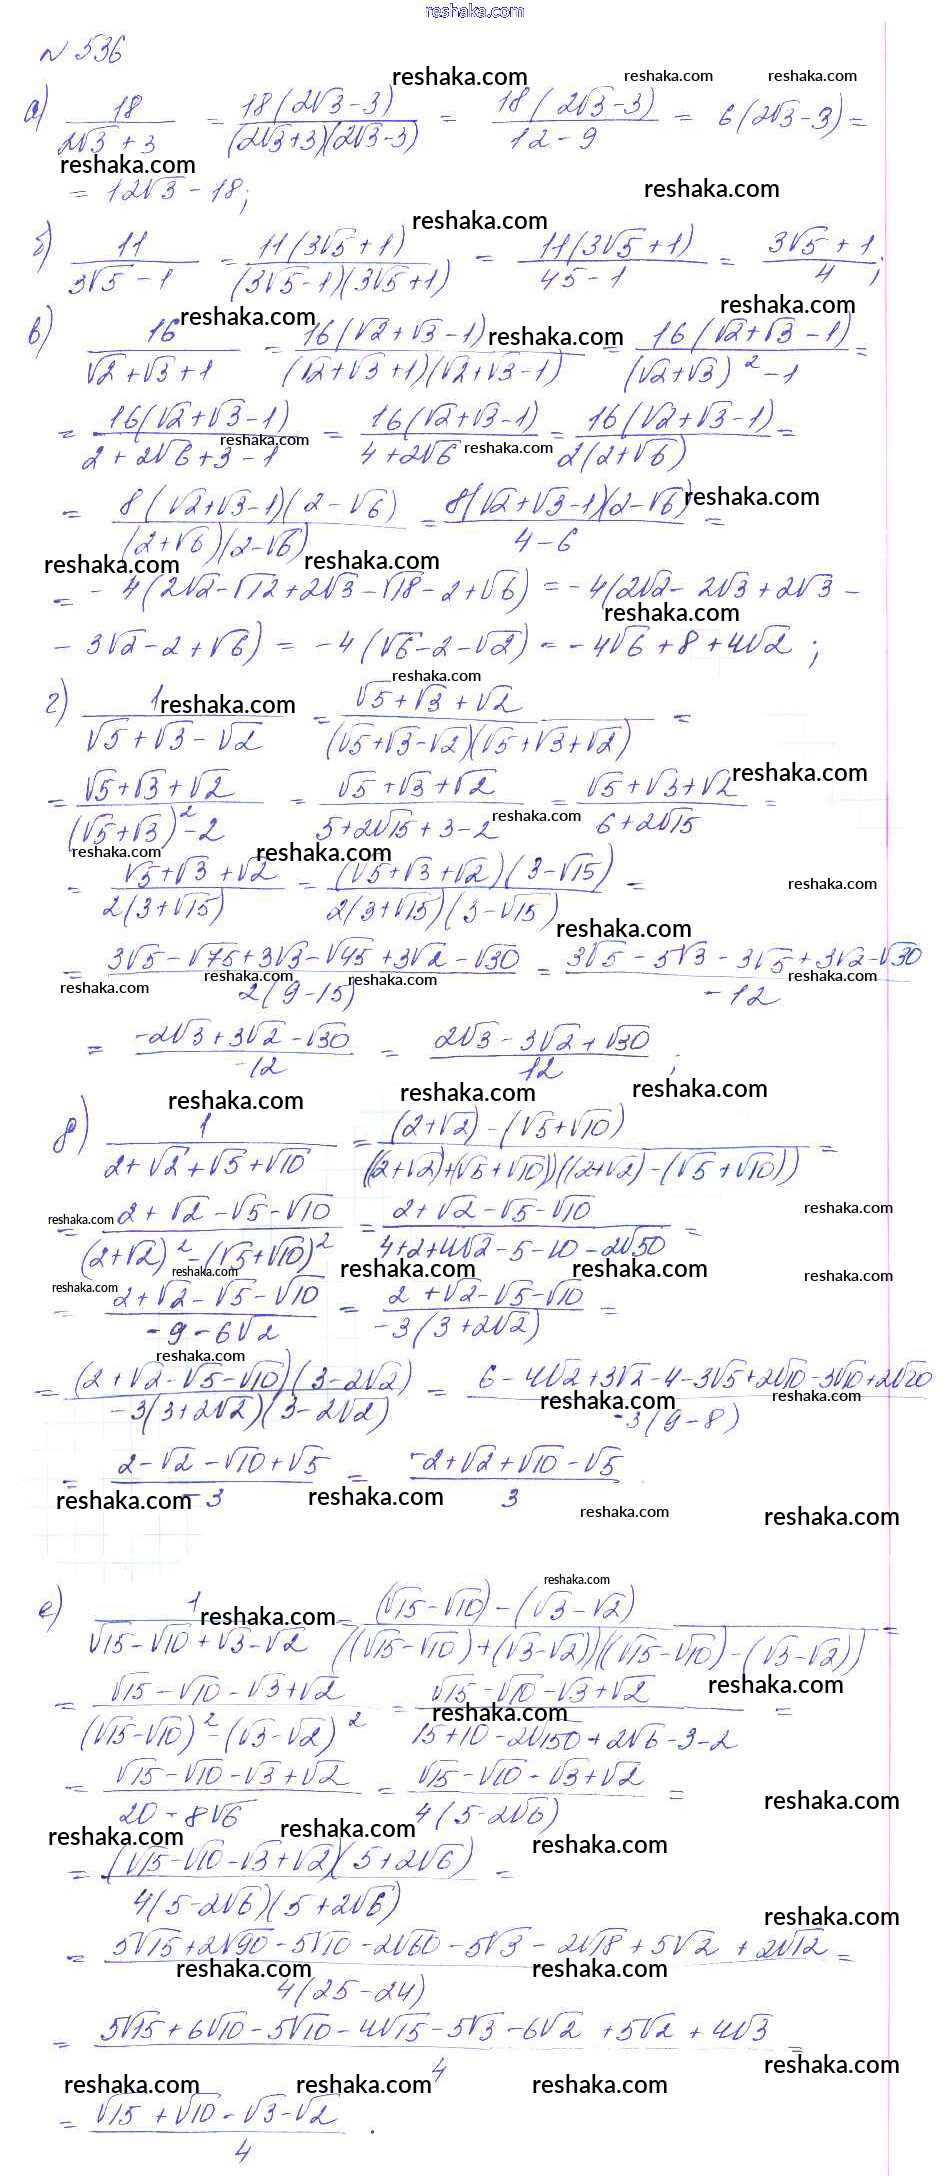 reshaka.com
№ 536
а) 18/(2√3 + 3) = 18(2√3 - 3)/((2√3+3)(2√3-3)) = 18(2√3-3)/(12-9) = 6(2√3-3) =
= 12√3 - 18;
б) 11/(3√5 - 1) = 11(3√5+1)/((3√5-1)(3√5+1)) = 11(3√5+1)/(45-1) = (3√5+1)/4;
в) 16/(√2+√3+1) = 16(√2+√3-1)/((√2+√3+1)(√2+√3-1)) = 16(√2+√3-1)/((√2+√3)²-1) =
= 16(√2+√3-1)/(2+2√6+3-1) = 16(√2+√3-1)/(4+2√6) = 16(√2+√3-1)/(2(2+√6)) =
= 8(√2+√3-1)(2-√6)/((2+√6)(2-√6)) = 8(√2+√3-1)(2-√6)/(4-6) =
= -4(2√2-√12+2√3-√18-2+√6) = -4(2√2-2√3+2√3-
-3√2-2+√6) = -4(√6-2-√2) = -4√6+8+4√2;
г) 1/(√5+√3-√2) = (√5+√3+√2)/((√5+√3-√2)(√5+√3+√2)) =
= (√5+√3+√2)/((√5+√3)²-2) = (√5+√3+√2)/(5+2√15+3-2) = (√5+√3+√2)/(6+2√15) =
= (√5+√3+√2)/(2(3+√15)) = (√5+√3+√2)(3-√15)/(2(3+√15)(3-√15)) =
= (3√5-√75+3√3-√45+3√2-√30)/(2(9-15)) = (3√5-5√3-3√5+3√2-√30)/(-12)
= (-2√3+3√2-√30)/(-12) = (2√3-3√2+√30)/12;
д) 1/(2+√2+√5+√10) = ((2+√2)-(√5+√10))/(((2+√2)+(√5+√10))((2+√2)-(√5+√10))) =
= (2+√2-√5-√10)/((2+√2)²-(√5+√10)²) = (2+√2-√5-√10)/(4+2+4√2-5-10-2√50) =
= (2+√2-√5-√10)/(-9-6√2) = (2+√2-√5-√10)/(-3(3+2√2)) =
= (2+√2-√5-√10)(3-2√2)/(-3(3+2√2)(3-2√2)) = (6-4√2+3√2-4-3√5+2√10-3√10+2√20)/(-3(9-8))
= (2-√2-√10+√5)/(-3) = (-2+√2+√10-√5)/3
е) 1/(√15-√10+√3-√2) = ((√15-√10)-(√3-√2))/(((√15-√10)+(√3-√2))((√15-√10)-(√3-√2))) =
= (√15-√10-√3+√2)/((√15-√10)²-(√3-√2)²) = (√15-√10-√3+√2)/(15+10-2√150+2√6-3-2) =
= (√15-√10-√3+√2)/(20-8√6) = (√15-√10-√3+√2)/(4(5-2√6)) =
= (√15-√10-√3+√2)(5+2√6)/(4(5-2√6)(5+2√6)) =
= (5√15+2√90-5√10-2√60-5√3-2√18+5√2+2√12)/(4(25-24)) =
= (5√15+6√10-5√10-4√15-5√3-6√2+5√2+4√3)/4 =
= (√15+√10-√3-√2)/4.